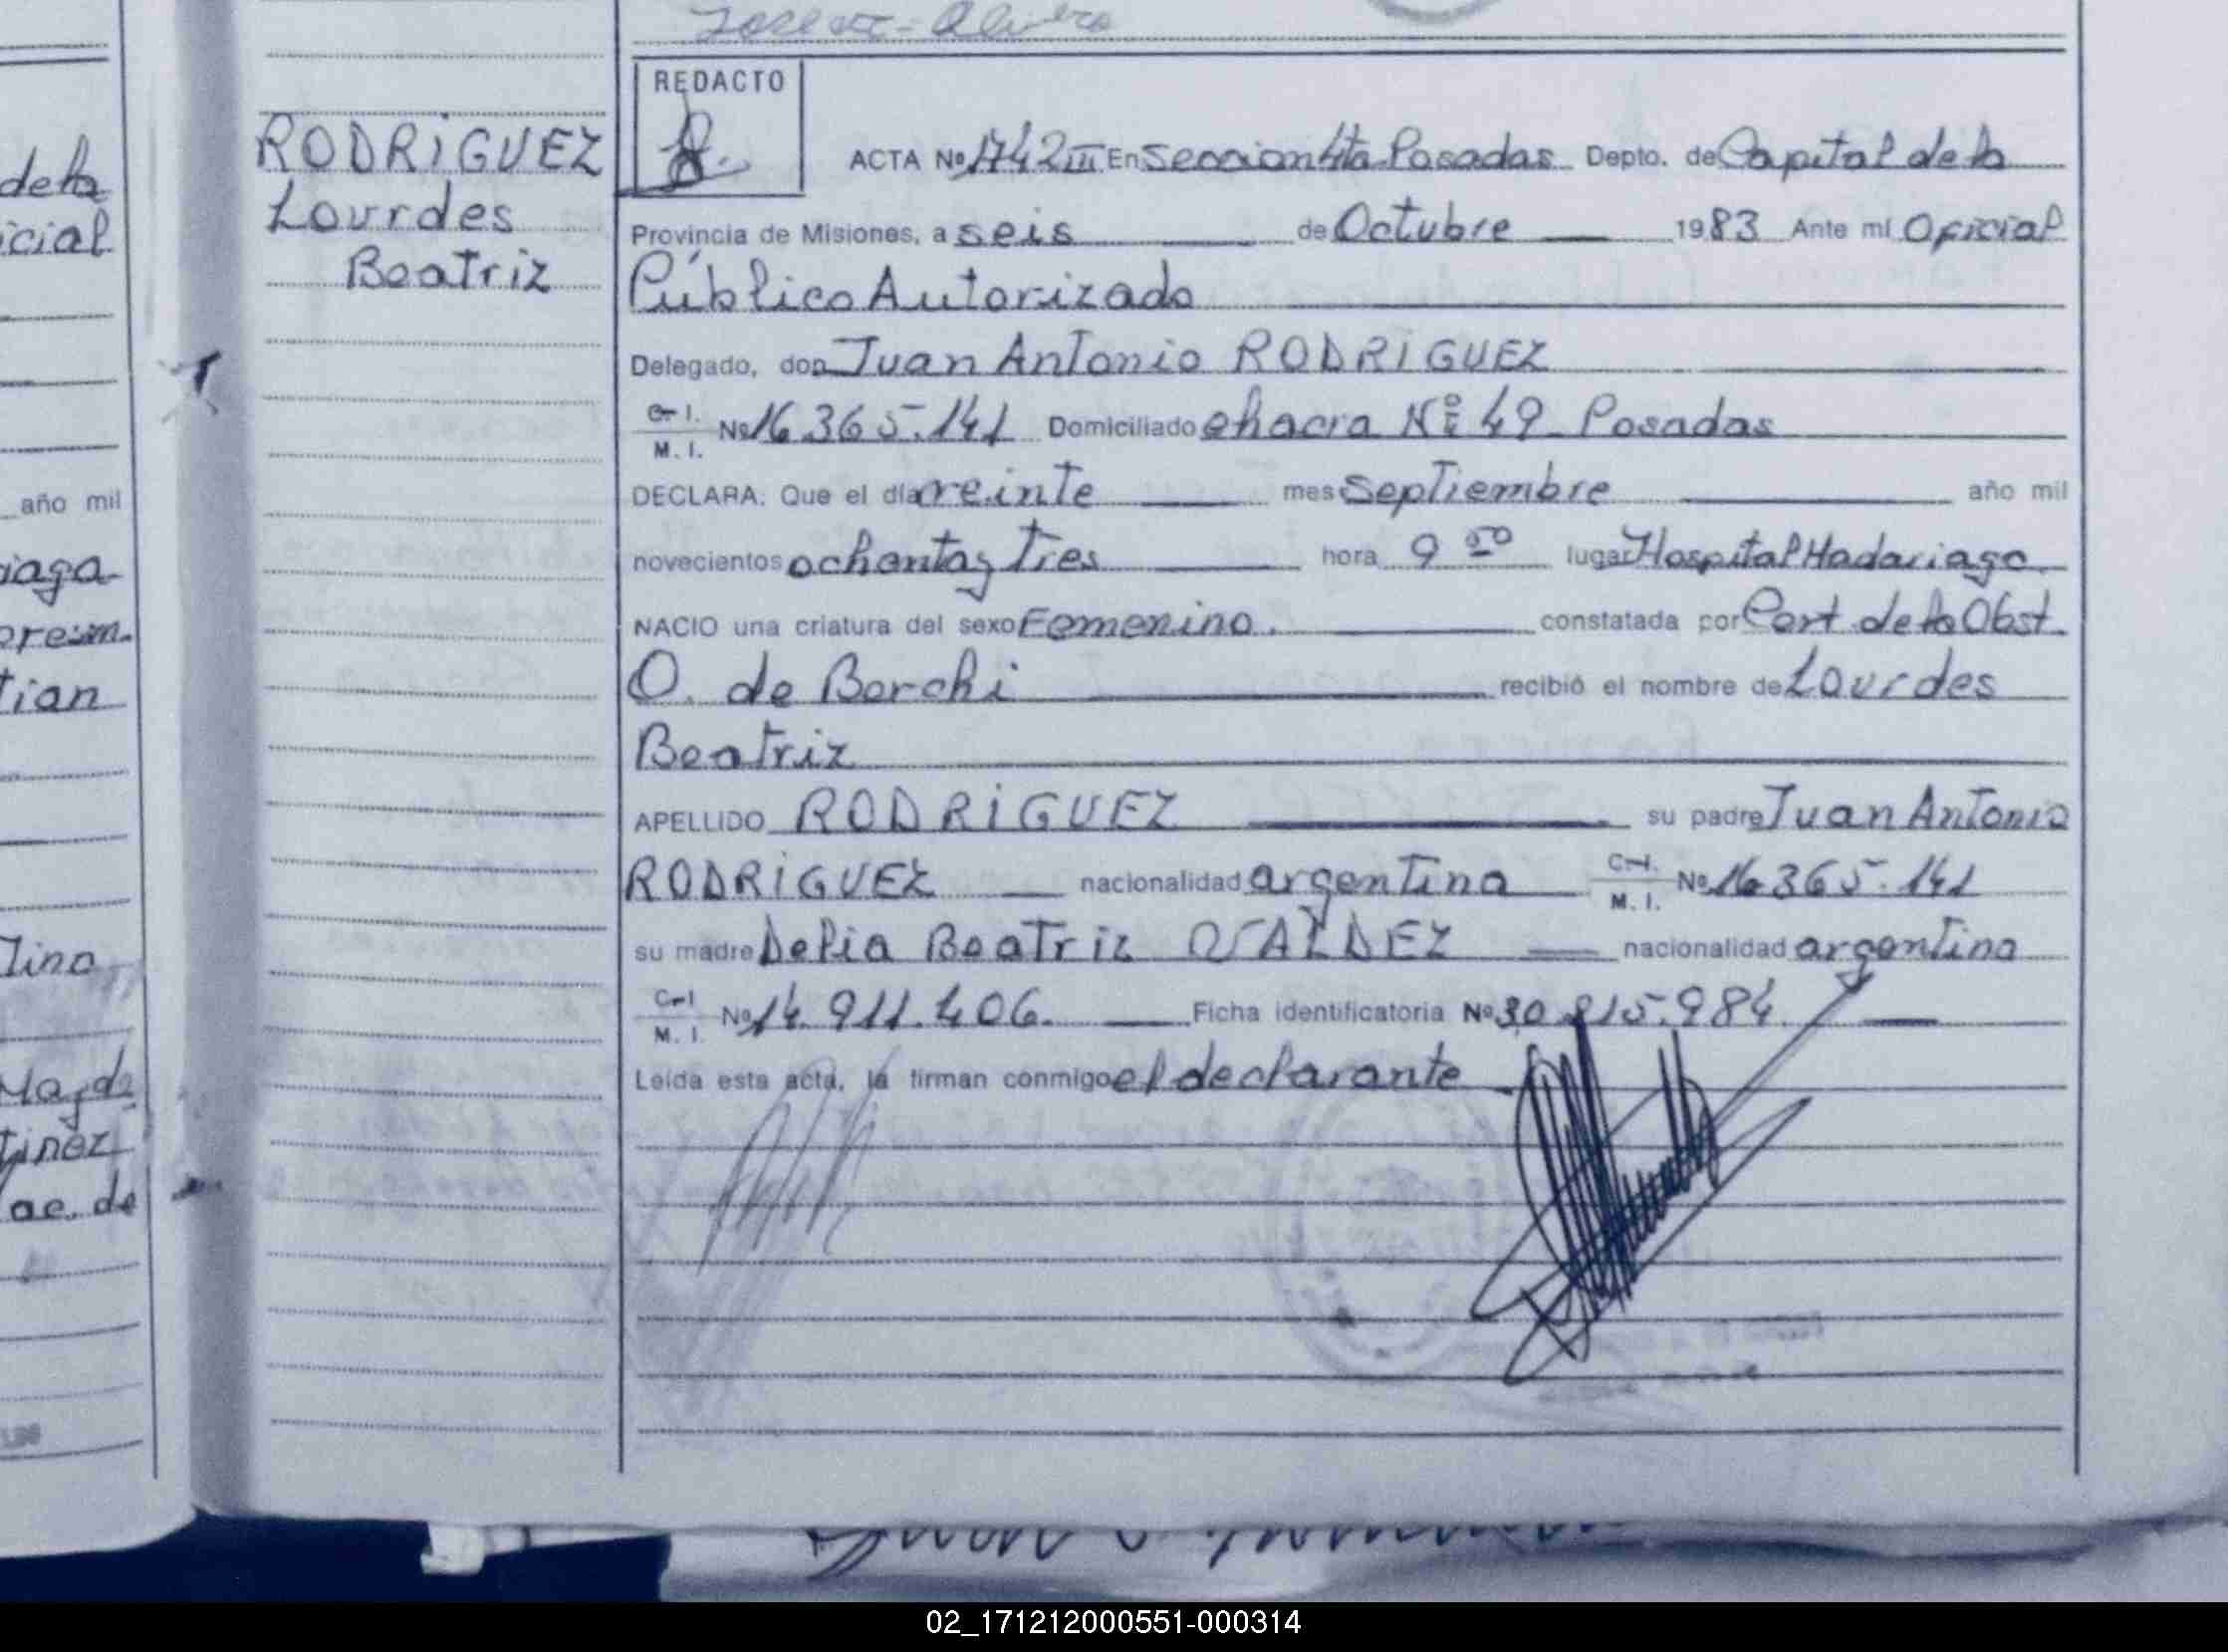 de la
icial
año mil
iaga
tian
Tina
Magda
tinez
ac. de
RODRIGUEZ
Lourdes
Beatriz
REDACTO
ACTA Nº 1742 III En Seccion 4ta Posadas Depto. de Capital de la
Provincia de Misiones, a seis de Octubre 1983 Ante mí Oficial
Público Autorizado
Delegado, don Juan Antonio RODRIGUEZ
C. I. / M. I. Nº 16.365.141 Domiciliado chacra Nº 49 - Posadas
DECLARA: Que el día veinte mes Septiembre año mil
novecientos ochenta y tres hora 9 50 lugar Hospital Madariaga
NACIO una criatura del sexo Femenino. constatada por Cert de la Obst.
O. de Borchi recibió el nombre de Lourdes
Beatriz
APELLIDO RODRIGUEZ su padre Juan Antonio
RODRIGUEZ nacionalidad argentina C. I. / M. I. Nº 16.365.141
su madre Delia Beatriz VALDEZ nacionalidad argentina
C. I. / M. I. Nº 14.911.406. Ficha identificatoria Nº 30.815.984
Leída esta acta, la firman conmigo el declarante
02_171212000551-000314